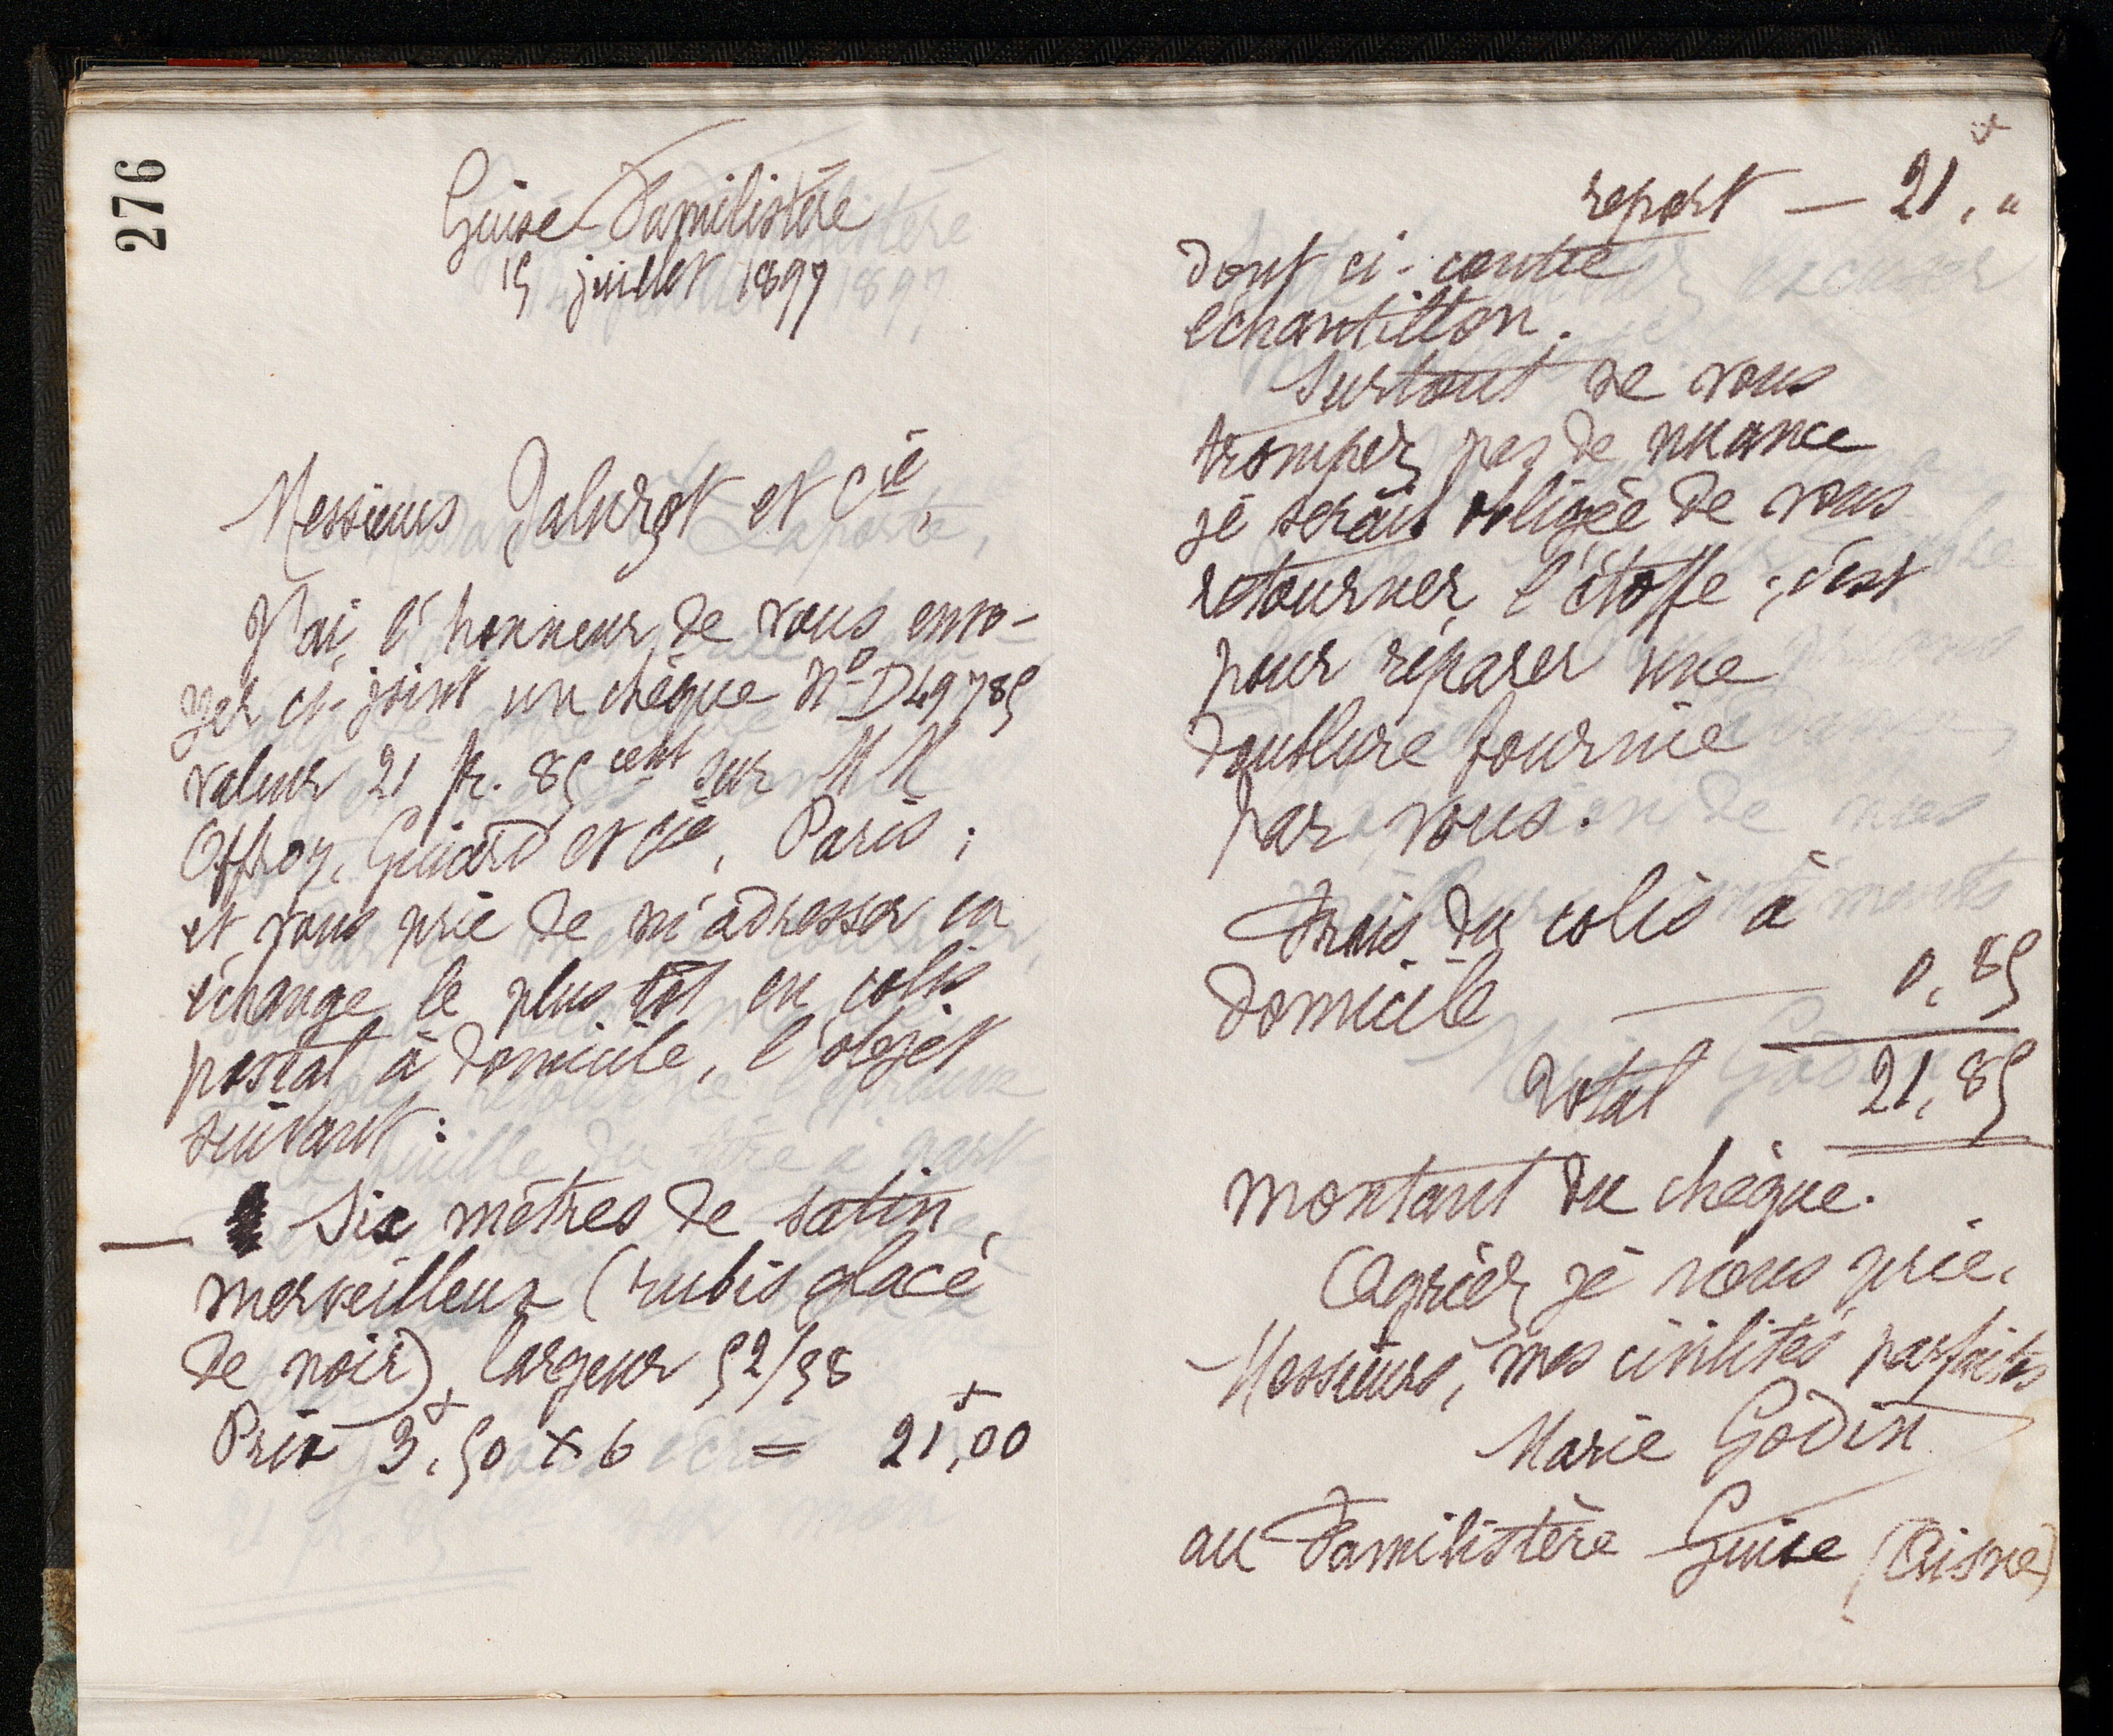 276
Guise-Familistère
15 juillet 1897
Messieurs Jaluzot et Cie,
J'ai l'honneur de vous envo-
yer ci-joint un chèque No D49785
valeur 21 fr. 85 cent sur MM
Offroy, Guiard et Cie, Paris;
et vous prie de m'adresser en
échange le plus tôt en colis
postal à domicile, l'objet
suivant:
— Six mètres de satin
merveilleux (rubis glacé
de noir) largeur 52/58
Prix 3f,50 x 6 = 21f,00
report — 21f, "
dont ci-contre
échantillon.
Surtout ne vous
trompez pas de nuance
je serais obligée de vous
retourner l'étoffe; c'est
pour réparer une
doublure fournie
par vous.
Frais du colis à
domicile — 0,85
Total 21,85
montant du chèque.
Agréez je vous prie,
Messieurs, mes civilités parfaites
Marie Godin
au Familistère Guise (Aisne)